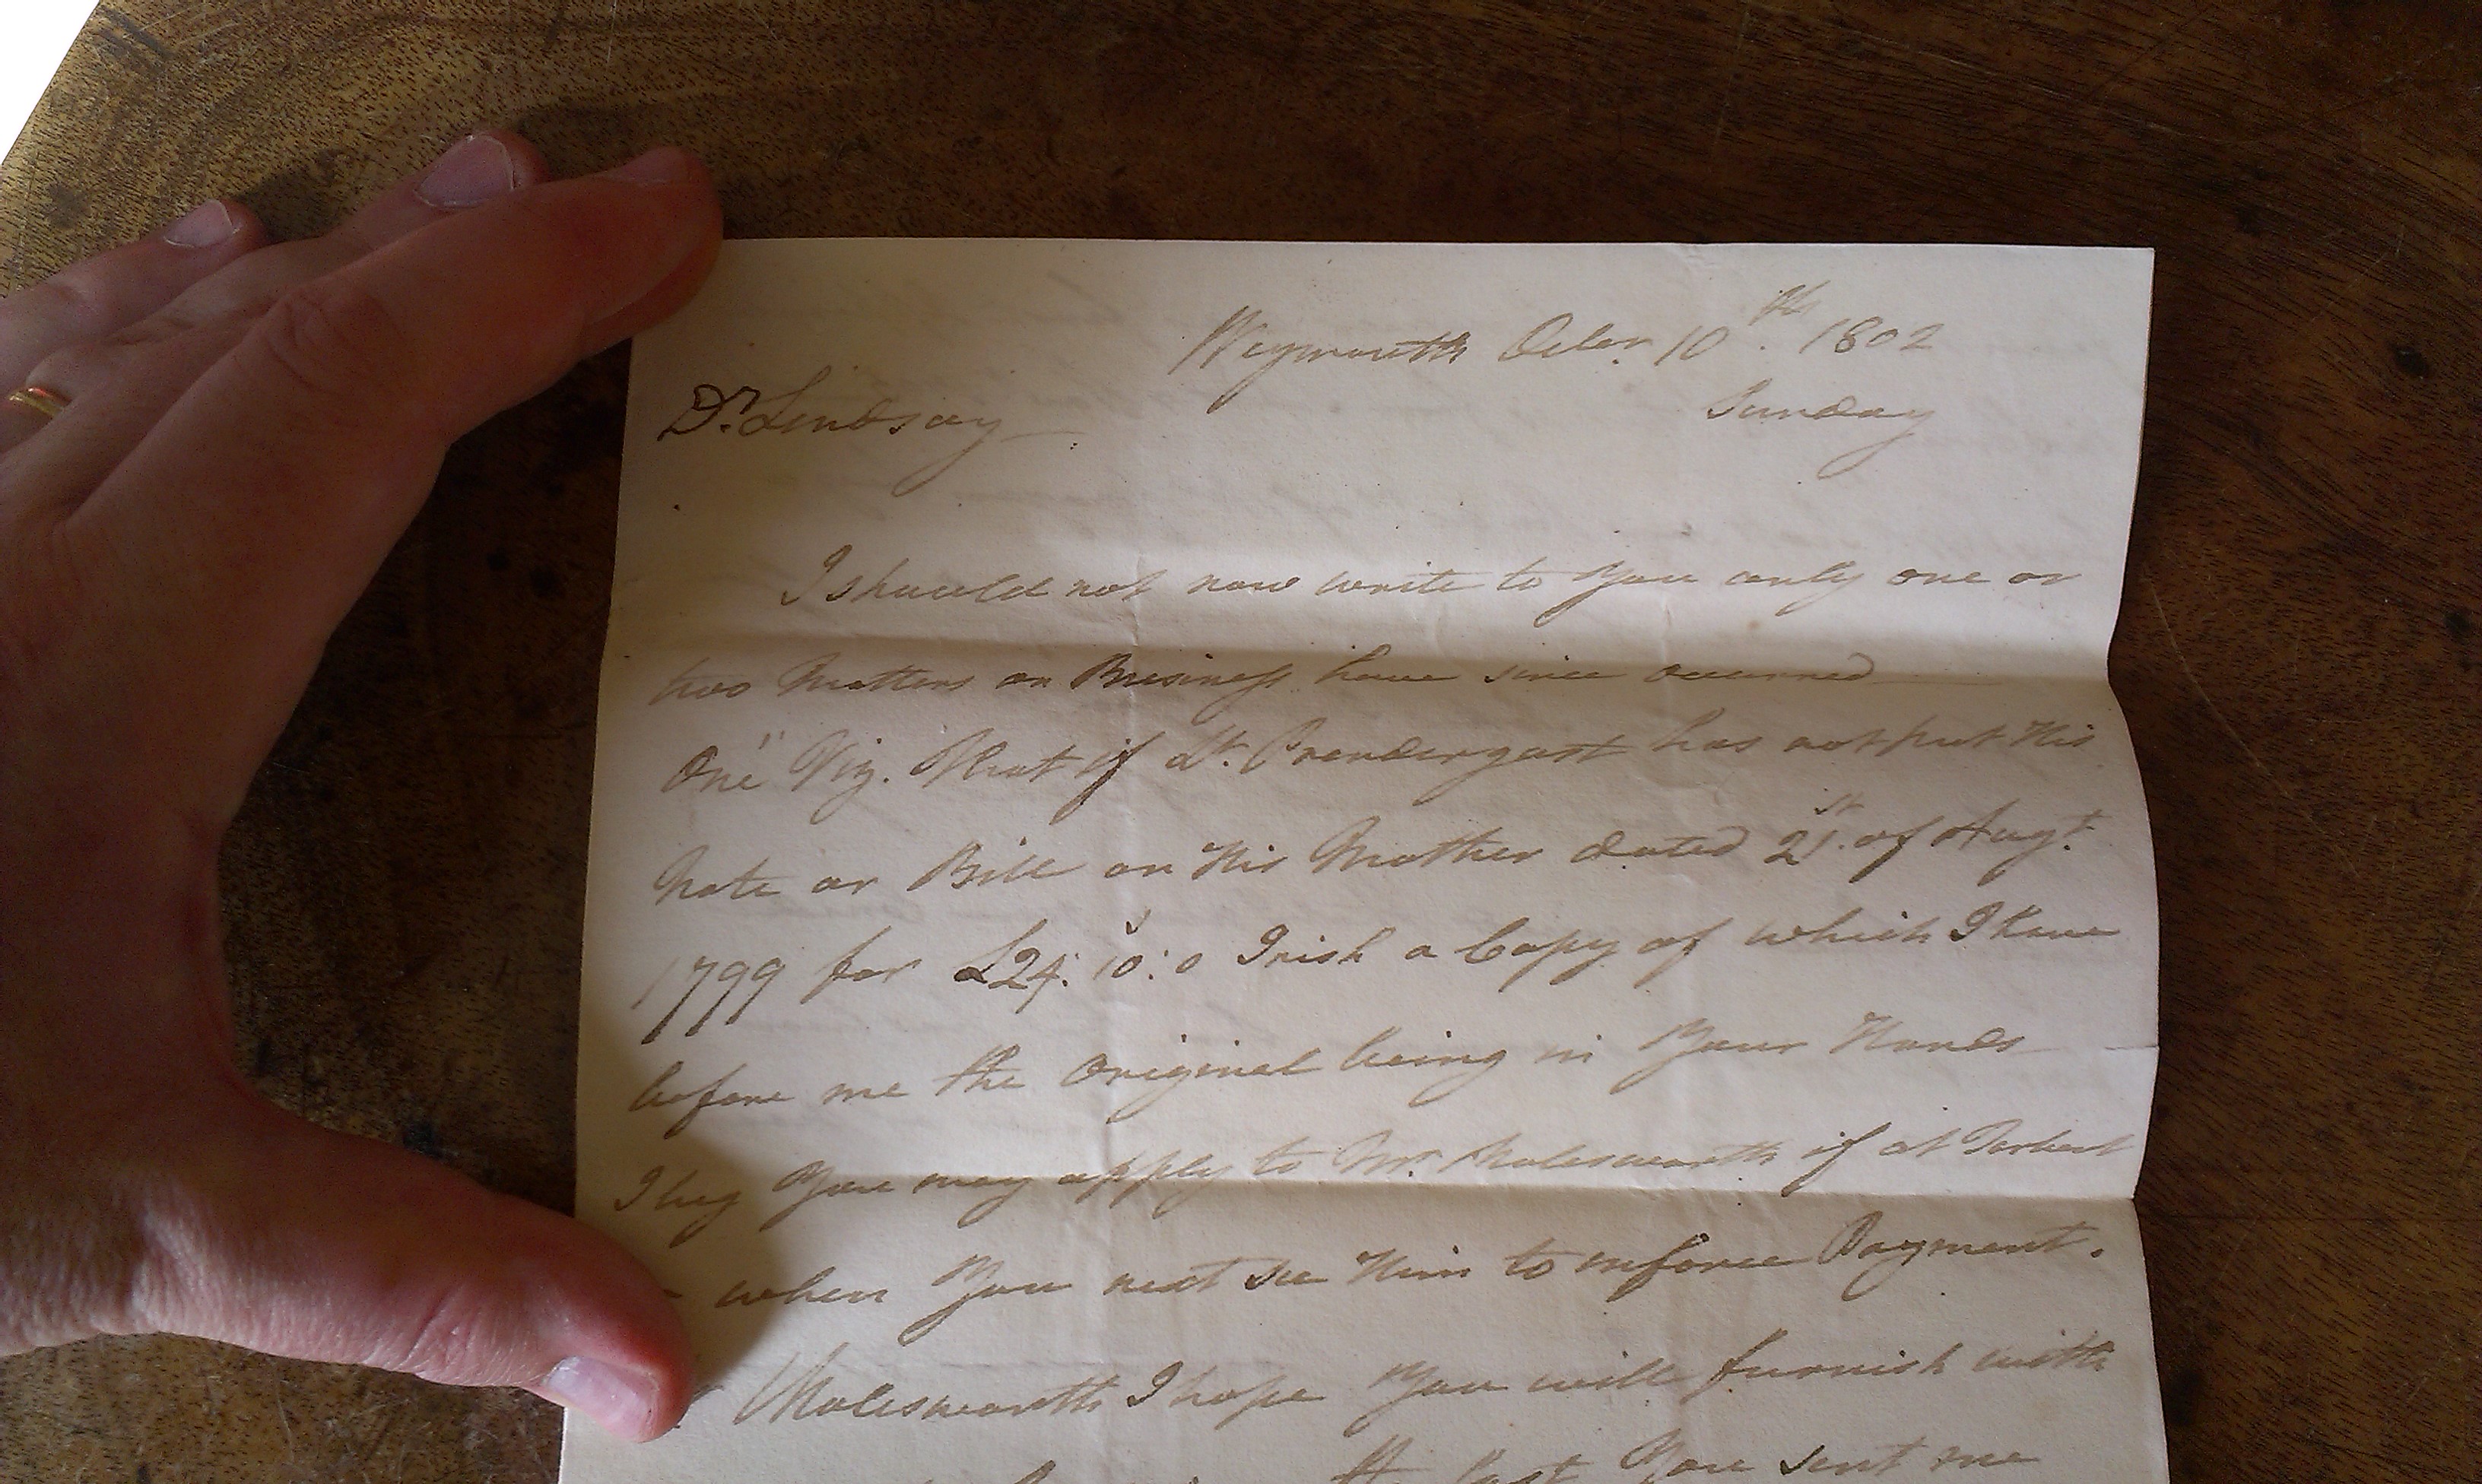 Weymouth Octer. 10th. 1802
Sunday
Dr. Lindsay
I should not now write to You only one or
two Matters on Business have since occurred
One" Viz. That if Lt. Prendergast has not put His
Note or Bill on His Mother dated 21st. of Augt.
1799 for £24: 10s: 0 Irish a Copy of which I have
before me the Original being in Your Hands
I beg You may apply to Mr. Molesworth if at Tarbert
when You next see Him to enforce Payment.
Molesworth I hope You will furnish with
the last You sent me